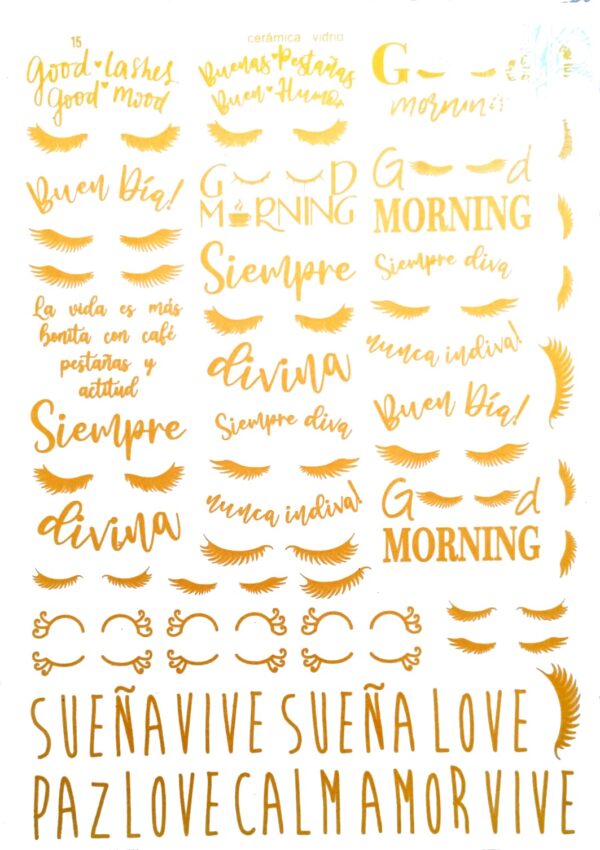 15
cerámica vidrio
good lashes
good mood
Buenas Pestañas
Buen Humor
G d
morning
Buen Día!
G D
MORNING
G d
MORNING
Siempre
divina
Siempre diva
nunca indiva!
Buen Día!
La vida es más
bonita con café
pestañas y
actitud
Siempre
divina
Siempre diva
nunca indiva!
G d
MORNING
SUEÑA VIVE SUEÑA LOVE
PAZ LOVE CALM AMOR VIVE